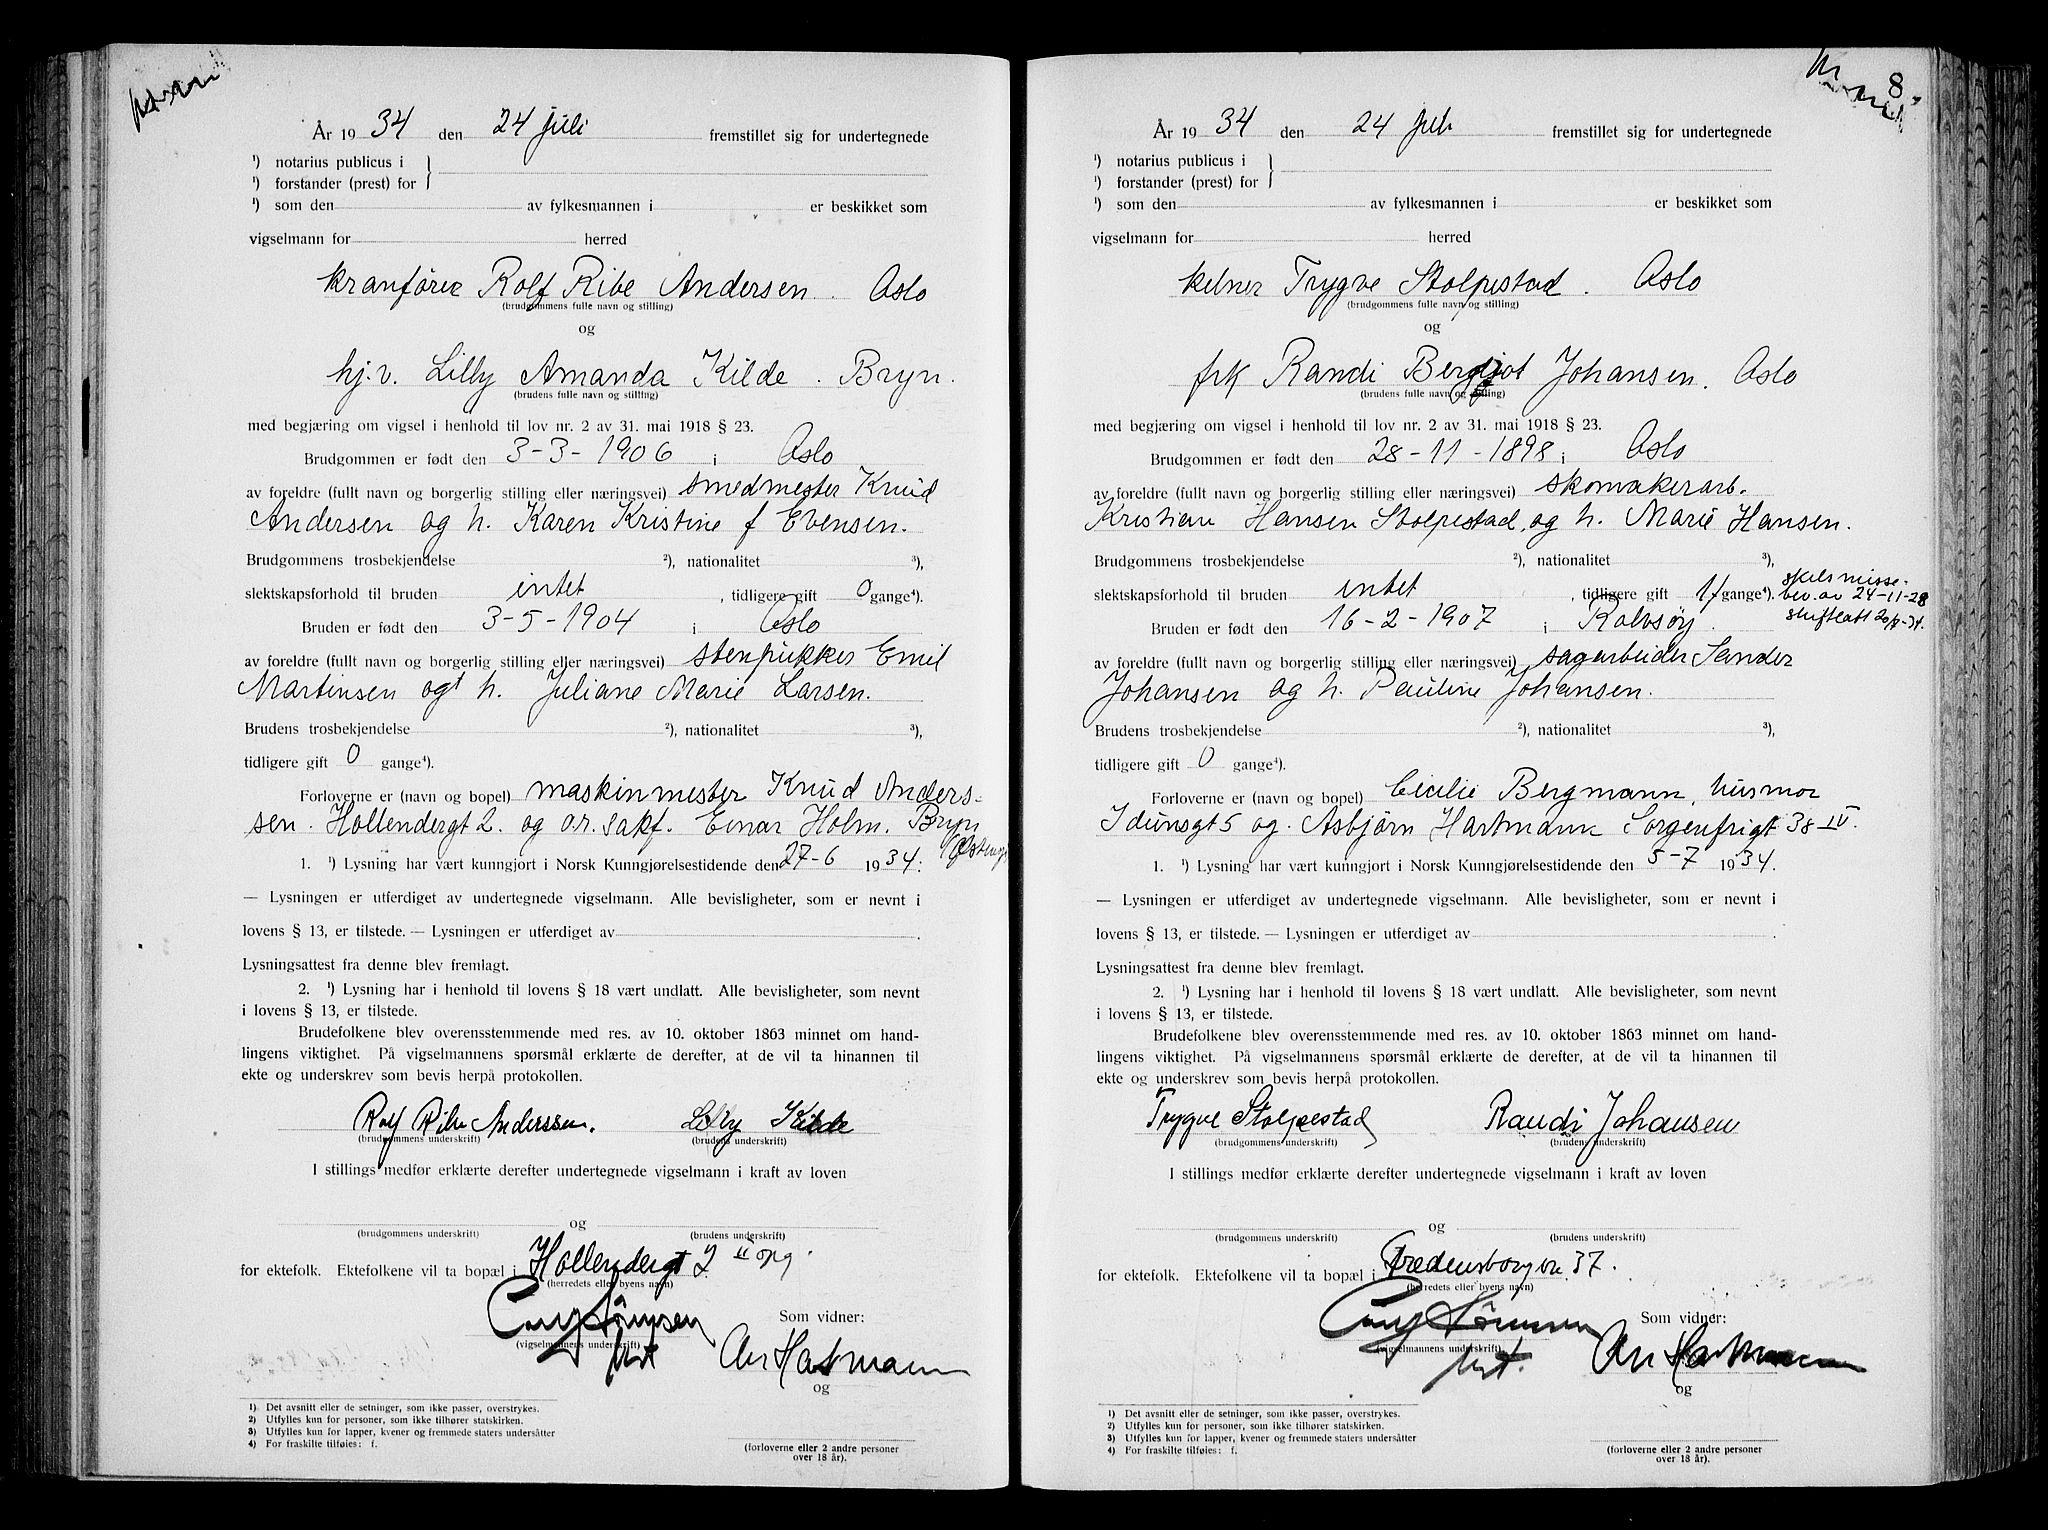 År 19 34 den 24 juli fremstillet sig for undertegnede
¹) notarius publicus i
¹) forstander (prest) for
¹) som den av fylkesmannen i er beskikket som
vigselmann for herred
kranfører Rolf Ribe Andersen. Oslo
(brudgommens fulle navn og stilling)
og
hj.v. Lilly Amanda Kilde. Bryn.
(brudens fulle navn og stilling)
med begjæring om vigsel i henhold til lov nr. 2 av 31. mai 1918 § 23.
Brudgommen er født den 3-3-1906 i Oslo
av foreldre (fullt navn og borgerlig stilling eller næringsvei) smedmester Knud
Andersen og h. Karen Kristine f Evensen.
Brudgommens trosbekjendelse ²), nationalitet ³),
slektskapsforhold til bruden intet , tidligere gift 0 gange⁴).
Bruden er født den 3-5-1904 i Oslo
av foreldre (fullt navn og borgerlig stilling eller næringsvei) stenpukker Emil
Martinsen og h. Juliane Marie Larsen.
Brudens trosbekjendelse ²), nationalitet ³),
tidligere gift 0 gange⁴).
Forloverne er (navn og bopel) maskinmester Knud Anders-
sen. Hollendergt 2. og o.r.sakf. Einar Holm. Bryn
1. ¹) Lysning har vært kunngjort i Norsk Kunngjørelsestidende den 27-6 1934.
— Lysningen er utferdiget av undertegnede vigselmann. Alle bevisligheter, som er nevnt i
lovens § 13, er tilstede. — Lysningen er utferdiget av
Lysningsattest fra denne blev fremlagt.
2. ¹) Lysning har i henhold til lovens § 18 vært undlatt. Alle bevisligheter, som nevnt
i lovens § 13, er tilstede.
Brudefolkene blev overensstemmende med res. av 10. oktober 1863 minnet om hand-
lingens viktighet. På vigselmannens spørsmål erklærte de derefter, at de vil ta hinannen til
ekte og underskrev som bevis herpå protokollen.
Rolf Ribe Anderssen. Lilly Kilde
(brudgommens underskrift) (brudens underskrift)
I stillings medfør erklærte derefter undertegnede vigselmann i kraft av loven
og
(brudgommens underskrift) (brudens underskrift)
for ektefolk. Ektefolkene vil ta bopæl i Hollendergt 2 II opg.
(herredets eller byens navn)
Som vidner:
(vigselmannens underskrift)
Hartmann
og
1) Det avsnitt eller de setninger, som ikke passer, overstrykes.
2) Utfylles kun for personer, som ikke tilhører statskirken.
3) Utfylles kun for lapper, kvener og fremmede staters undersåtter
4) For fraskilte tilføies: f.
(forloverne eller 2 andre personer
over 18 år).
8
År 19 34 den 24 juli fremstillet sig for undertegnede
¹) notarius publicus i
¹) forstander (prest) for
¹) som den av fylkesmannen i er beskikket som
vigselmann for herred
kelner Trygve Stolpestad. Oslo
(brudgommens fulle navn og stilling)
og
frk Randi Bergljot Johansen. Oslo
(brudens fulle navn og stilling)
med begjæring om vigsel i henhold til lov nr. 2 av 31. mai 1918 § 23.
Brudgommen er født den 28-11-1898 i Oslo
av foreldre (fullt navn og borgerlig stilling eller næringsvei) skomakerarb.
Kristian Hansen Stolpestad, og h. Marie Hansen.
Brudgommens trosbekjendelse ²), nationalitet ³),
slektskapsforhold til bruden intet , tidligere gift 1 f gange⁴). skilsmisse-
bev. av 24-11-28
Bruden er født den 16-2-1907 i Rolvsøy.
av foreldre (fullt navn og borgerlig stilling eller næringsvei) sagarbeider Sander
Johansen og h. Pauline Johansen.
Brudens trosbekjendelse ²), nationalitet ³),
tidligere gift 0 gange⁴).
Forloverne er (navn og bopel) Cicilie Bergmann, husmor
Idunsgt 5 og Asbjørn Hartmann Sorgenfrigt 38 IV.
1. ¹) Lysning har vært kunngjort i Norsk Kunngjørelsestidende den 5-7 1934.
— Lysningen er utferdiget av undertegnede vigselmann. Alle bevisligheter, som er nevnt i
lovens § 13, er tilstede. — Lysningen er utferdiget av
Lysningsattest fra denne blev fremlagt.
2. ¹) Lysning har i henhold til lovens § 18 vært undlatt. Alle bevisligheter, som nevnt
i lovens § 13, er tilstede.
Brudefolkene blev overensstemmende med res. av 10. oktober 1863 minnet om hand-
lingens viktighet. På vigselmannens spørsmål erklærte de derefter, at de vil ta hinannen til
ekte og underskrev som bevis herpå protokollen.
Trygve Stolpestad Randi Johansen
(brudgommens underskrift) (brudens underskrift)
I stillings medfør erklærte derefter undertegnede vigselmann i kraft av loven
og
(brudgommens underskrift) (brudens underskrift)
for ektefolk. Ektefolkene vil ta bopæl i Fredensborgvn. 37.
(herredets eller byens navn)
Som vidner:
(vigselmannens underskrift)
Hartmann
og
1) Det avsnitt eller de setninger, som ikke passer, overstrykes.
2) Utfylles kun for personer, som ikke tilhører statskirken.
3) Utfylles kun for lapper, kvener og fremmede staters undersåtter
4) For fraskilte tilføies: f.
(forloverne eller 2 andre personer
over 18 år).